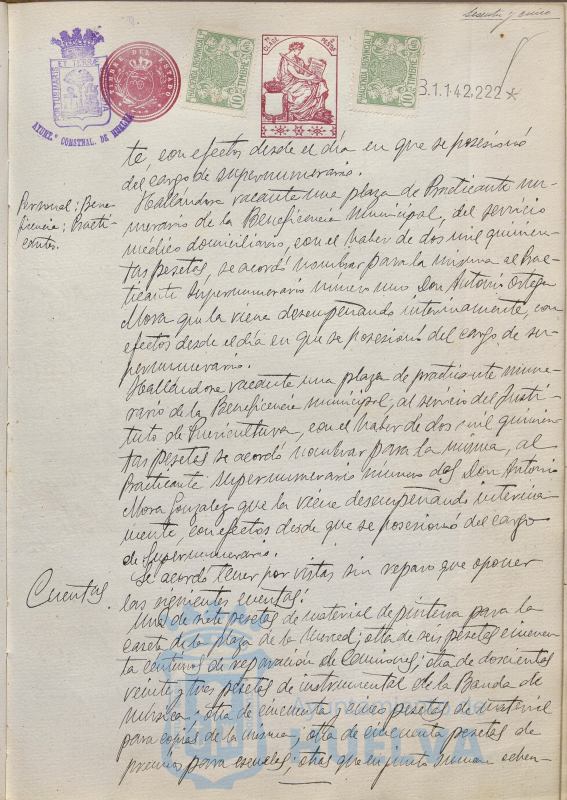 Sesenta y cinco
ET TERRÆ
PORTUS MARIS
AYUNT.º CONSTNAL. DE HUELVA
TIMBRE DEL ESTADO
HACIENDA PROVINCIAL
TIMBRE
10
CLASE
PESETAS
HACIENDA PROVINCIAL
TIMBRE
10
B1.142.222*
te, con efectos desde el día en que se posesionó
del cargo de supernumerario.
Personal: Bene-
ficencia: Practi-
cantes.
Hallándose vacante una plaza de Practicante nu-
merario de la Beneficencia Municipal, del servicio
médico domiciliario, con el haber de dos mil quinien-
tas pesetas, se acordó nombrar para la misma al Prac-
ticante supernumerario número uno Don Antonio Ortega
Mora que la viene desempeñando interinamente, con
efectos desde el día en que se posesionó del cargo de su-
pernumerario.
Hallándose vacante una plaza de practicante nume-
rario de la Beneficencia Municipal, al servicio del Insti-
tuto de Puericultura, con el haber de dos mil quinien-
tas pesetas se acordó nombrar para la misma, al
Practicante supernumerario número dos Don Antonio
Mora Gonzalez que la viene desempeñando interina-
mente, con efectos desde que se posesionó del cargo
de supernumerario.
Cuentas.
Se acordó tener por vistas sin reparo que oponer
las siguientes cuentas:
Una de siete pesetas de material de pintura para la
caseta de la plaza de la Merced; otra de seis pesetas cincuen-
ta centimos de reparación de Camiones; otra de doscientas
veinte y tres pesetas de instrumental de la Banda de
Música; otra de cincuenta y cinco pesetas de material
para copias de la misma; otra de cincuenta pesetas de
premios para escuelas; otras que en junto suman ochen-
Ayuntamiento de
HUELVA